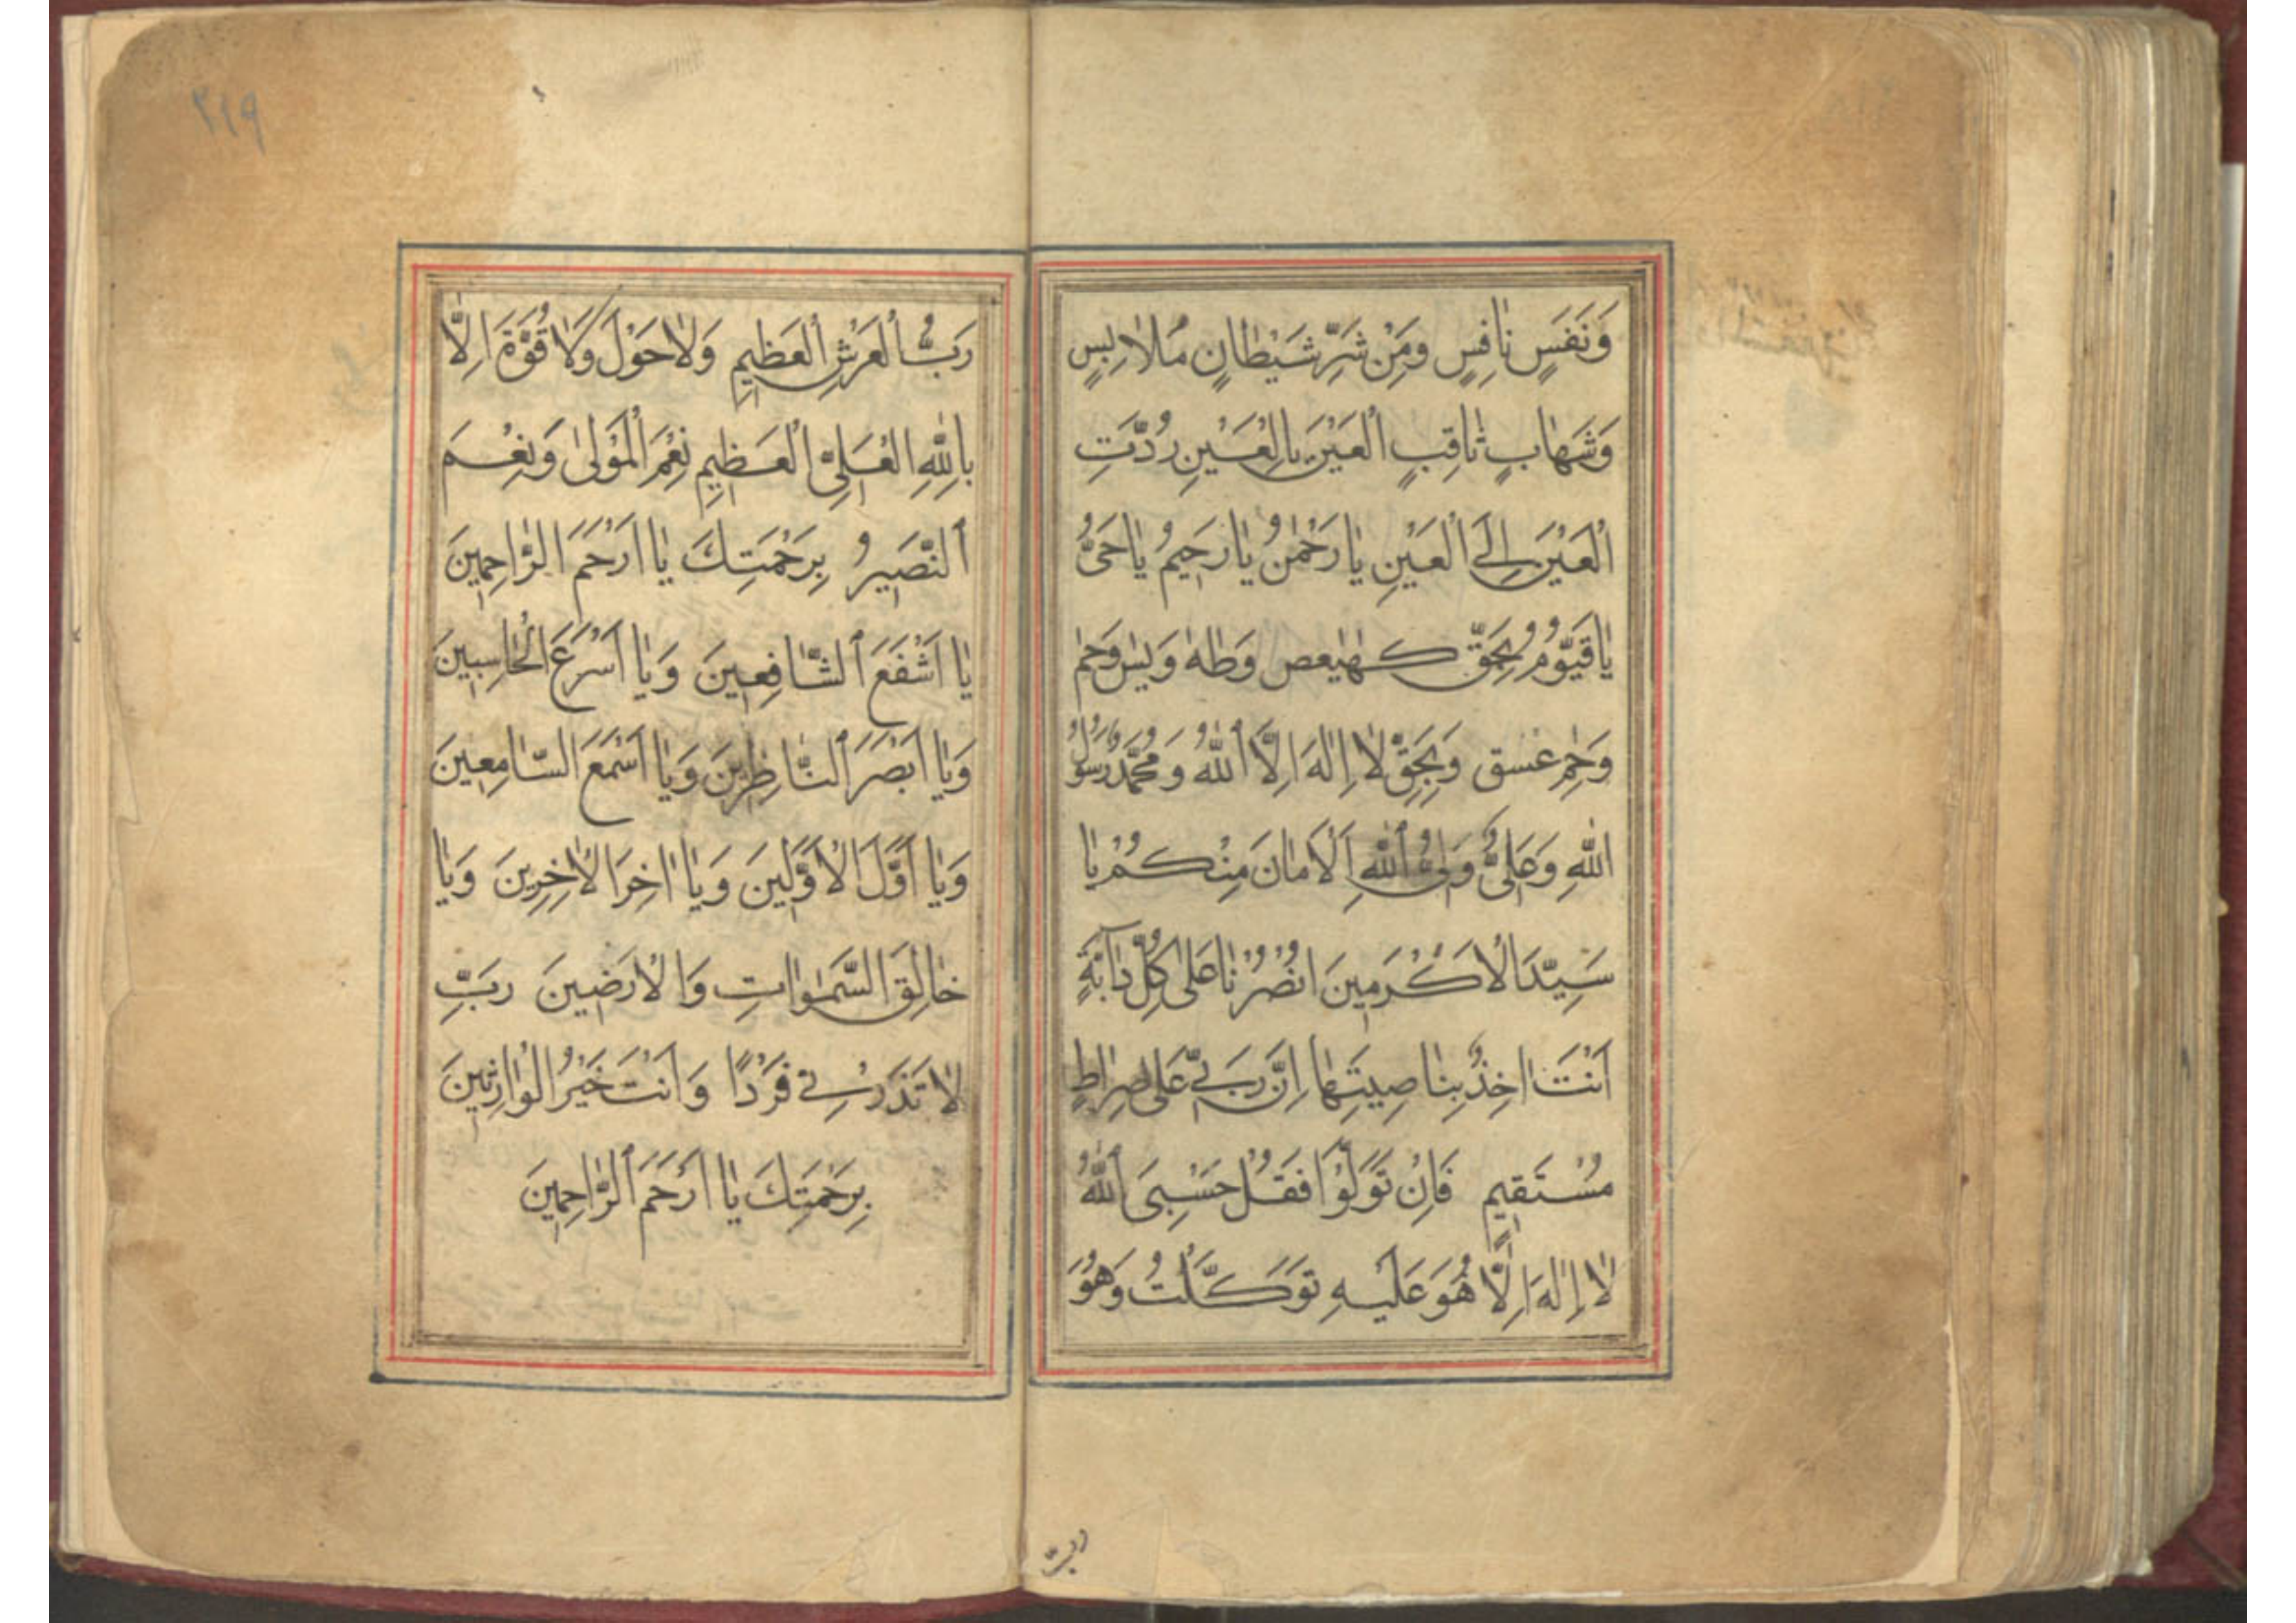 وَنَفَسٍ نٰافِسٍ وَمِنْ شَرِّ شَيْطٰانٍ مُلاٰبِسٍ
وَشَهٰابٍ ثٰاقِبٍ اَلْعَيْنَ بِالْعَيْنِ رُدَّتِ
الْعَيْنَ اِلَى الْعَيْنِ يٰا رَحْمٰنُ يٰا رَحِيمُ يٰا حَىُّ
يٰا قَيُّوْمُ بِحَقِّ كهٰيٰعص وَطٰهٰ وَيٰس وَحٰم
وَحٰم عسق وَبِحَقِّ لاٰ اِلٰهَ اِلَّا اللّٰهُ وَ مُحَمَّدٌ رَسُولُ
اللّٰهِ وَعَلِىٌّ وَلِىُّ اللّٰهِ اَلْاَمٰانَ مِنْكُمْ يٰا
سَيِّدَ الْاَكْرَمِينَ انْصُرْنٰا عَلىٰ كُلِّ دٰابَّةٍ
اَنْتَ اٰخِذٌ بِنٰاصِيَتِهٰا اِنَّ رَبِّي عَلىٰ صِرٰاطٍ
مُسْتَقِيمٍ فَاِنْ تَوَلَّوْا فَقُلْ حَسْبِىَ اللّٰهُ
لاٰ اِلٰهَ اِلَّا هُوَ عَلَيْهِ تَوَكَّلْتُ وَهُوَ
ربّ
٢١٩
رَبُّ الْعَرْشِ الْعَظِيمِ وَلاٰ حَوْلَ وَلاٰ قُوَّةَ اِلَّا
بِاللّٰهِ الْعَلِىِّ الْعَظِيمِ نِعْمَ الْمَوْلىٰ وَنِعْمَ
النَّصِيرُ بِرَحْمَتِكَ يٰا اَرْحَمَ الرّٰاحِمِينَ
يٰا اَشْفَعَ الشّٰافِعِينَ وَيٰا اَسْرَعَ الْحٰاسِبِينَ
وَيٰا اَبْصَرَ النّٰاظِرِينَ وَيٰا اَسْمَعَ السّٰامِعِينَ
وَيٰا اَوَّلَ الْاَوَّلِينَ وَيٰا اٰخِرَ الْاٰخِرِينَ وَيٰا
خٰالِقَ السَّمٰوٰاتِ وَالْاَرَضِينَ رَبِّ
لاٰ تَذَرْنِي فَرْدًا وَاَنْتَ خَيْرُ الْوٰارِثِينَ
بِرَحْمَتِكَ يٰا اَرْحَمَ الرّٰاحِمِينَ